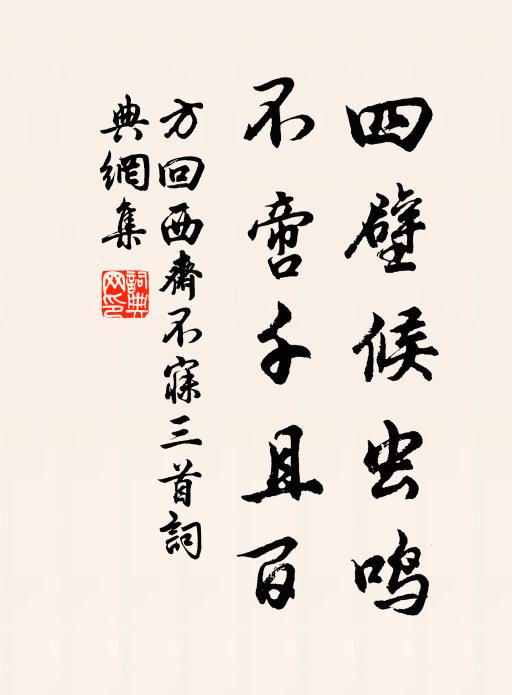 四壁候虫鸣
不啻千且百
方回西齋不寐三首詞
典網集
詞典網印